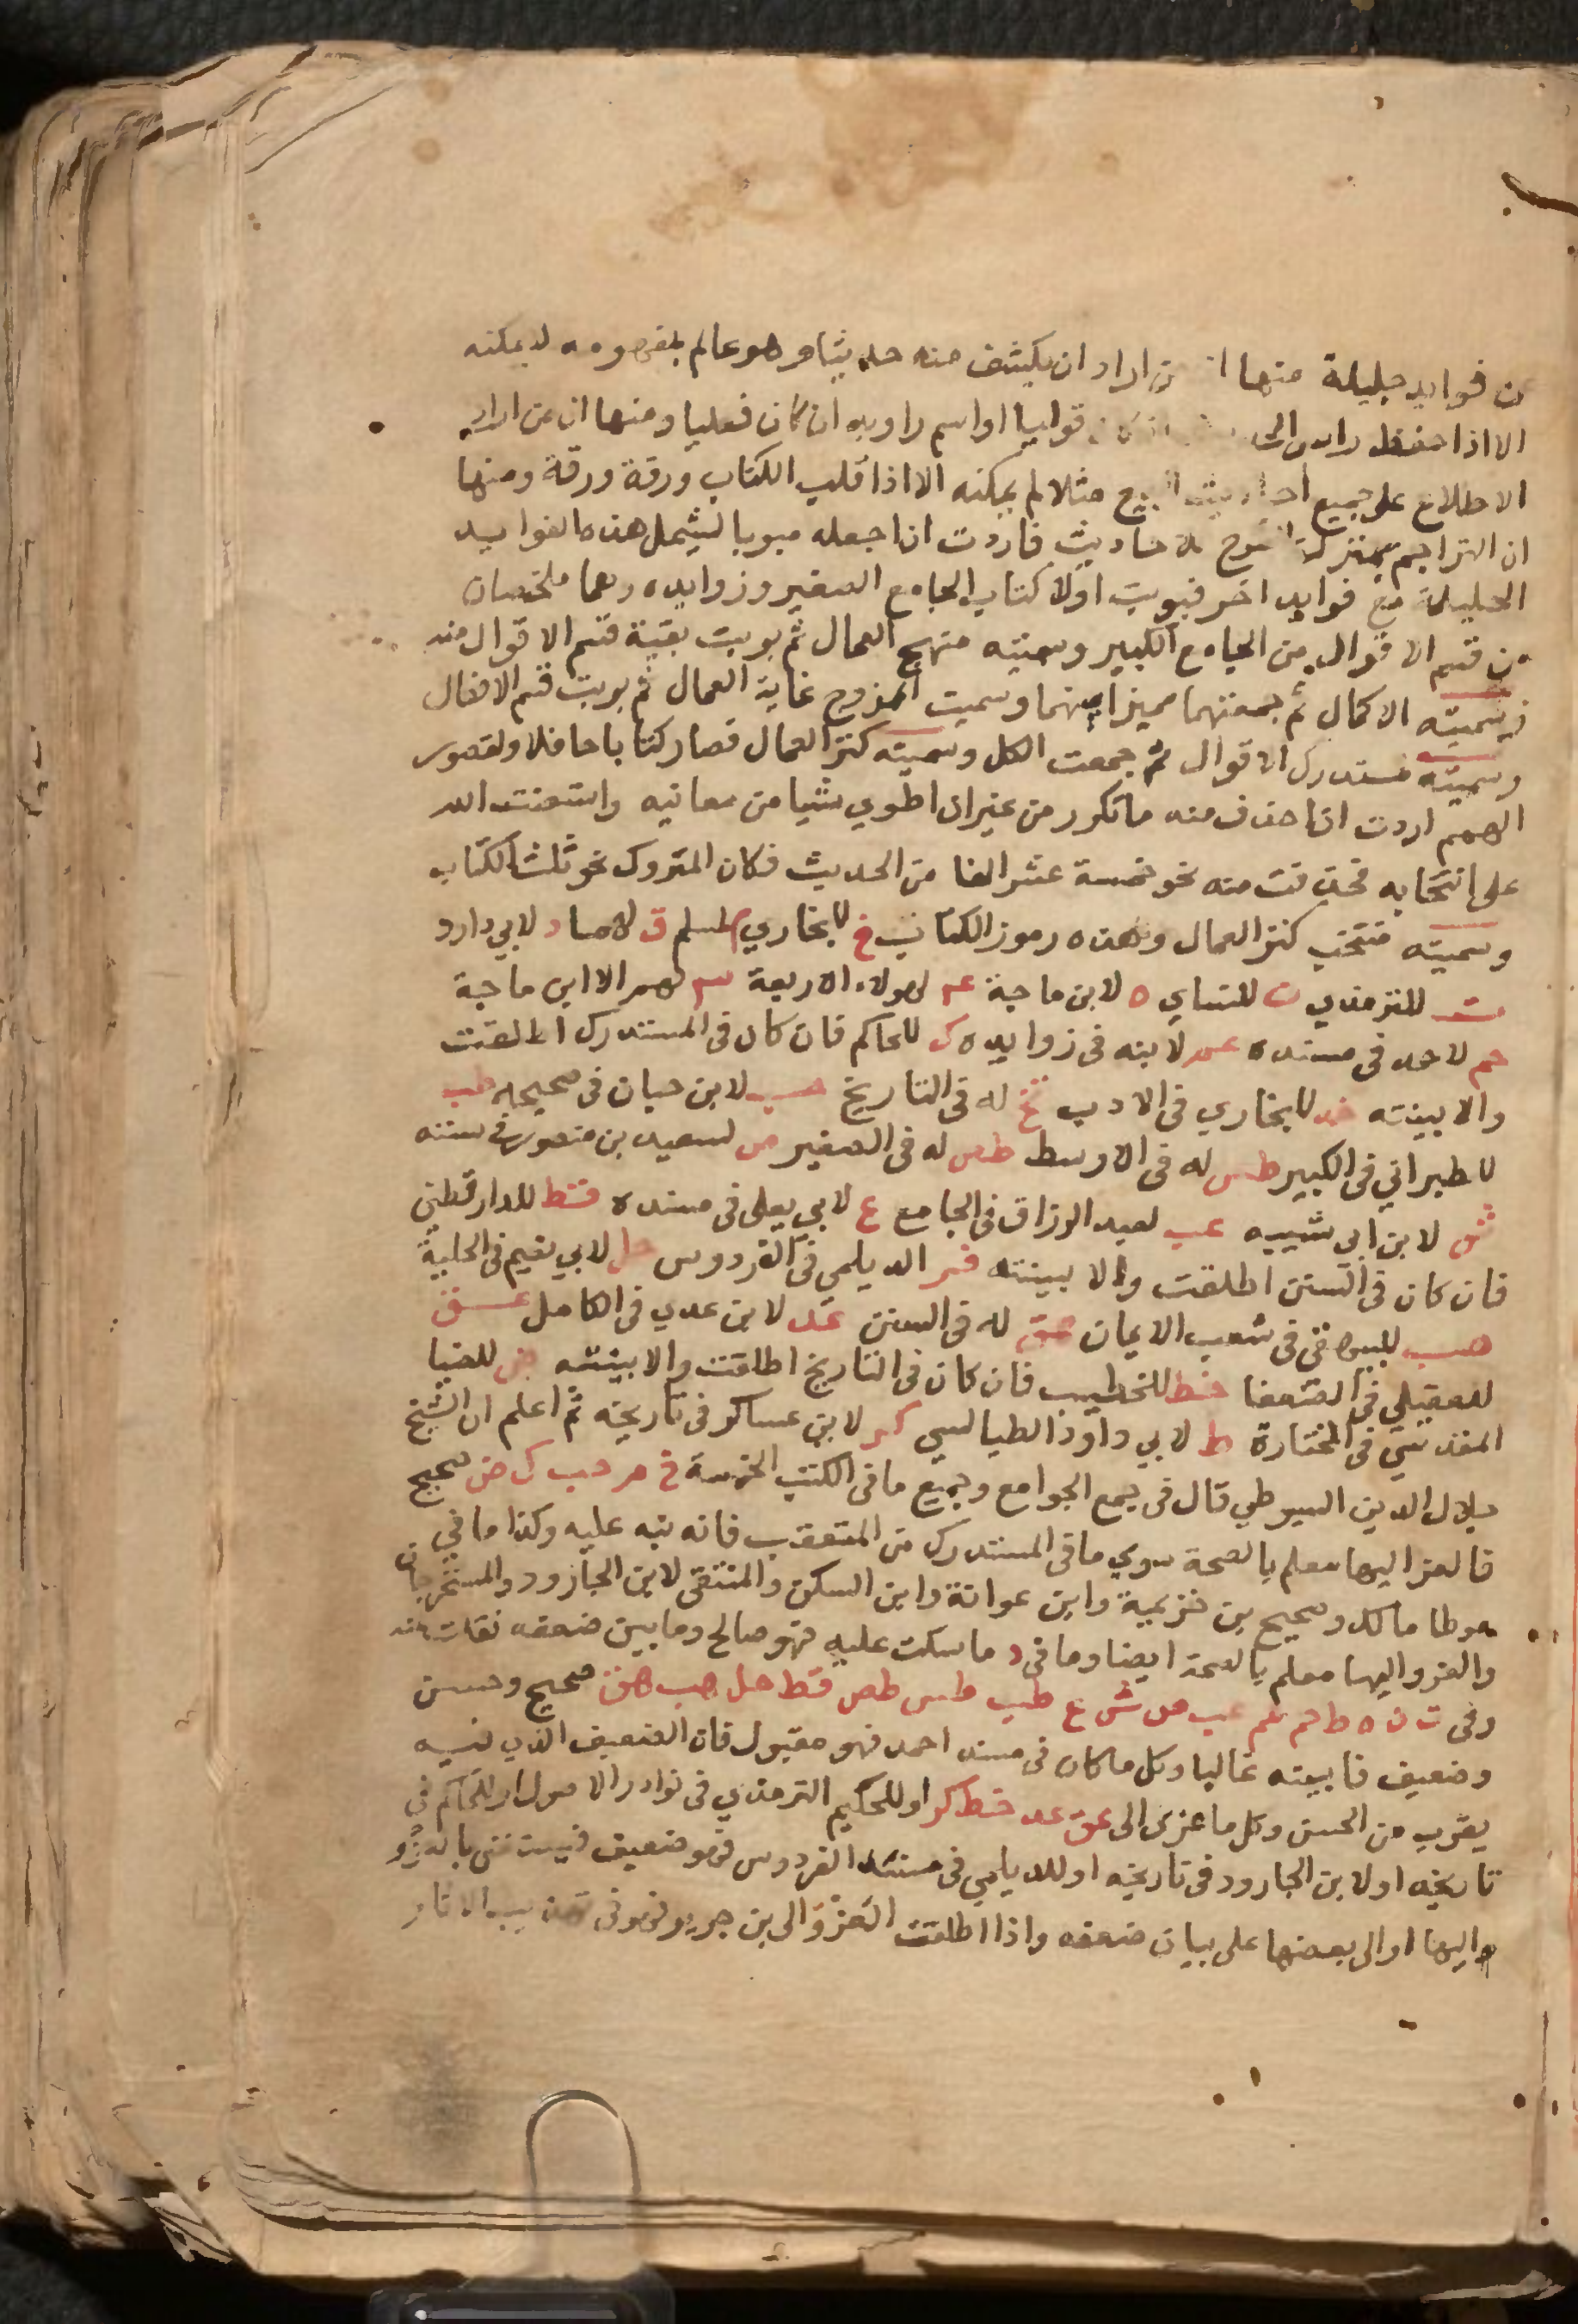 من فوايد جليلة منها ان من اراد ان يكشف منه حديثا وهو عالم بمفهومه لا يمكنه
الا اذا حفظ راس الحديث ان كان قوليا او اسم راويه ان كان فعليا ومنها ان من اراد
الاطلاع على جميع احاديث البيع مثلا لم يمكنه الا اذا قلب الكتاب ورقة ورقة ومنها
ان التراجم بمنزلة الشرح للاحاديث فاردت ان اجعله مبوبا ليشمل هذه الفوايد
الجليلة مع فوايد اخر فبوبت اولا كتاب الجامع الصغير وزوايده وهما ملخصان
من قسم الاقوال من الجامع الكبير وسميته منهج العمال ثم بوبت بقية قسم الاقوال منه
وسميته الاكمال ثم جمعتهما مميزا بينهما وسميت الممزوج غاية العمال ثم بوبت قسم الافعال
وسميته مستدرك الاقوال ثم جمعت الكل وسميته كنز العمال فصار كتابا حافلا ولقصور
الهمم اردت ان احذف منه ما تكرر من غير ان اطوي شيا من معانيه واستعنت الله
على انتخابه فحذفت منه نحو خمسة عشر الفا من الحديث فكان المتروك نحو ثلث الكتاب
وسميته منتخب كنز العمال وهذه رموز الكتاب خ للبخاري م لمسلم ق لهما د لابي داود
ت للترمذي ن للنساي ه لابن ماجة ٤ لهولاء الاربعة ٣ لهم الا ابن ماجة
حم لاحمد في مسنده عم لابنه في زوايده ك للحاكم فان كان في المستدرك اطلقت
والا بينته خد للبخاري في الادب تخ له في التاريخ حب لابن حبان في صحيحه طب
للطبراني في الكبير طس له في الاوسط طص له في الصغير ص لسعيد بن منصور في سننه
ش لابن ابي شيبه عب لعبد الرزاق في الجامع ع لابي يعلى في مسنده قط للدارقطني
فان كان في السنن اطلقت والا بينته فر الديلمي في الفردوس حل لابي نعيم في الحلية
هب للبيهقي في شعب الايمان هق له في السنن عد لابن عدي في الكامل عق
للعقيلي في الضعفا خط للخطيب فان كان في التاريخ اطلقت والا بينته ض للضيا
المقدسي في المختارة ط لابي داود الطيالسي كر لابن عساكر في تاريخه ثم اعلم ان الشيخ
جلال الدين السيوطي قال في جمع الجوامع وجميع ما في الكتب الخمسة خ م حب ك ض صحيح
فالعزو اليها معلم بالصحة سوي ما في المستدرك من المتعقب فانه نبه عليه وكذا ما في
موطا مالك وصحيح بن خزيمة وابن عوانة وابن السكن والمنتقى لابن الجارود والمستخرجات
والعزو اليها معلم بالصحة ايضا وما في د ما سكت عليه فهو صالح وما بين ضعفه نقلت عنه
وفي ت ن ه ط حم عم عب ص ش ع طب طس طص قط حل هب هق صحيح وحسن
وضعيف فابينه غالبا وكل ما كان في مسند احمد فهو مقبول فان الضعيف الذي فيه
يقرب من الحسن وكل ما عزى الى عق عد خط كر او للحكيم الترمذي في نوادر الاصول او للحاكم في
تاريخه او لابن الجارود في تاريخه او للديلمي في مسند الفردوس فهو ضعيف فيستغنى بالعزو
اليها او الى بعضها على بيان ضعفه واذا اطلقت العزو الى بن جرير فهو في تهذيب الاثار